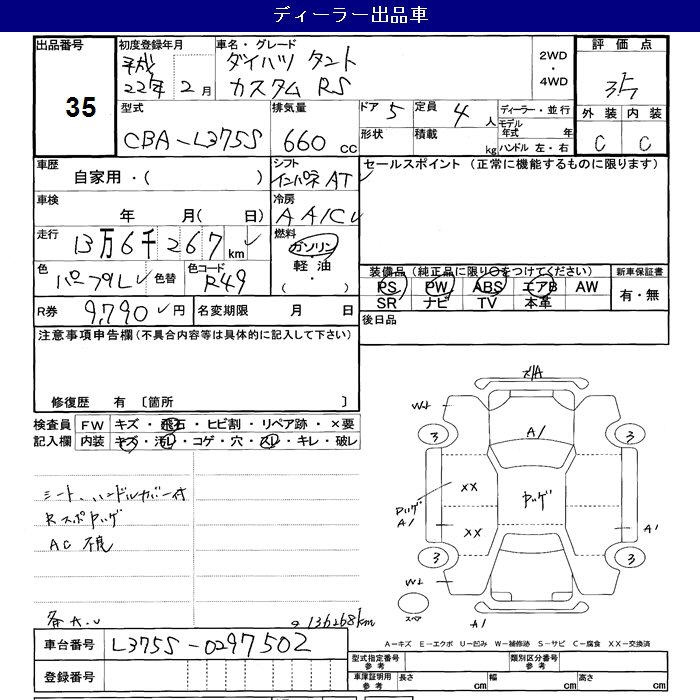 ディーラー出品車
出品番号
35
初度登録年月
平成
22年 2月
車名・グレード
ダイハツ タント
カスタム RS
2WD
・
4WD
評価点
3.5
外装 内装
C C
型式
CBA-L375S
排気量
660 cc
ドア 5
定員 4 人
形状
積載 kg
ディーラー・並行
モデル年式 年
ハンドル 左・右
車歴
自家用・( )
シフト
インパネAT
車検
年 月( 日)
冷房
AA/C
走行
13万6千267km
燃料
ガソリン
・
軽油
・
( )
色
パープルし
色替
色コード
R49
R券 9,790円
名変期限 月 日
セールスポイント(正常に機能するものに限ります)
装備品(純正品に限り○をつけてください)
PS PW ABS エアB AW
SR ナビ TV 本革
新車保証書
有・無
後日品
注意事項申告欄(不具合内容等は具体的に記入して下さい)
修復歴 有 〔箇所 〕
検査員 記入欄
FW キズ・飛石・ヒビ割・リペア跡・×要
内装 キズ・汚レ・コゲ・穴・スレ・キレ・破レ
シート、ハンドルカバー付
Rスポヤッゲ
AC不良
各A.U
136268km
A1
W1
3
3
XX
XX
ヤッゲ
ヤッゲ
A1
A1
3
3
W1
スペア
A1
A-キズ E-エクボ U-凹み W-補修跡 S-サビ C-腐食 XX-交換済
車台番号 L375S-0297502
登録番号
型式指定番号 参考
類別区分番号 参考
車庫証明用 参考
長さ cm
幅 cm
高さ cm